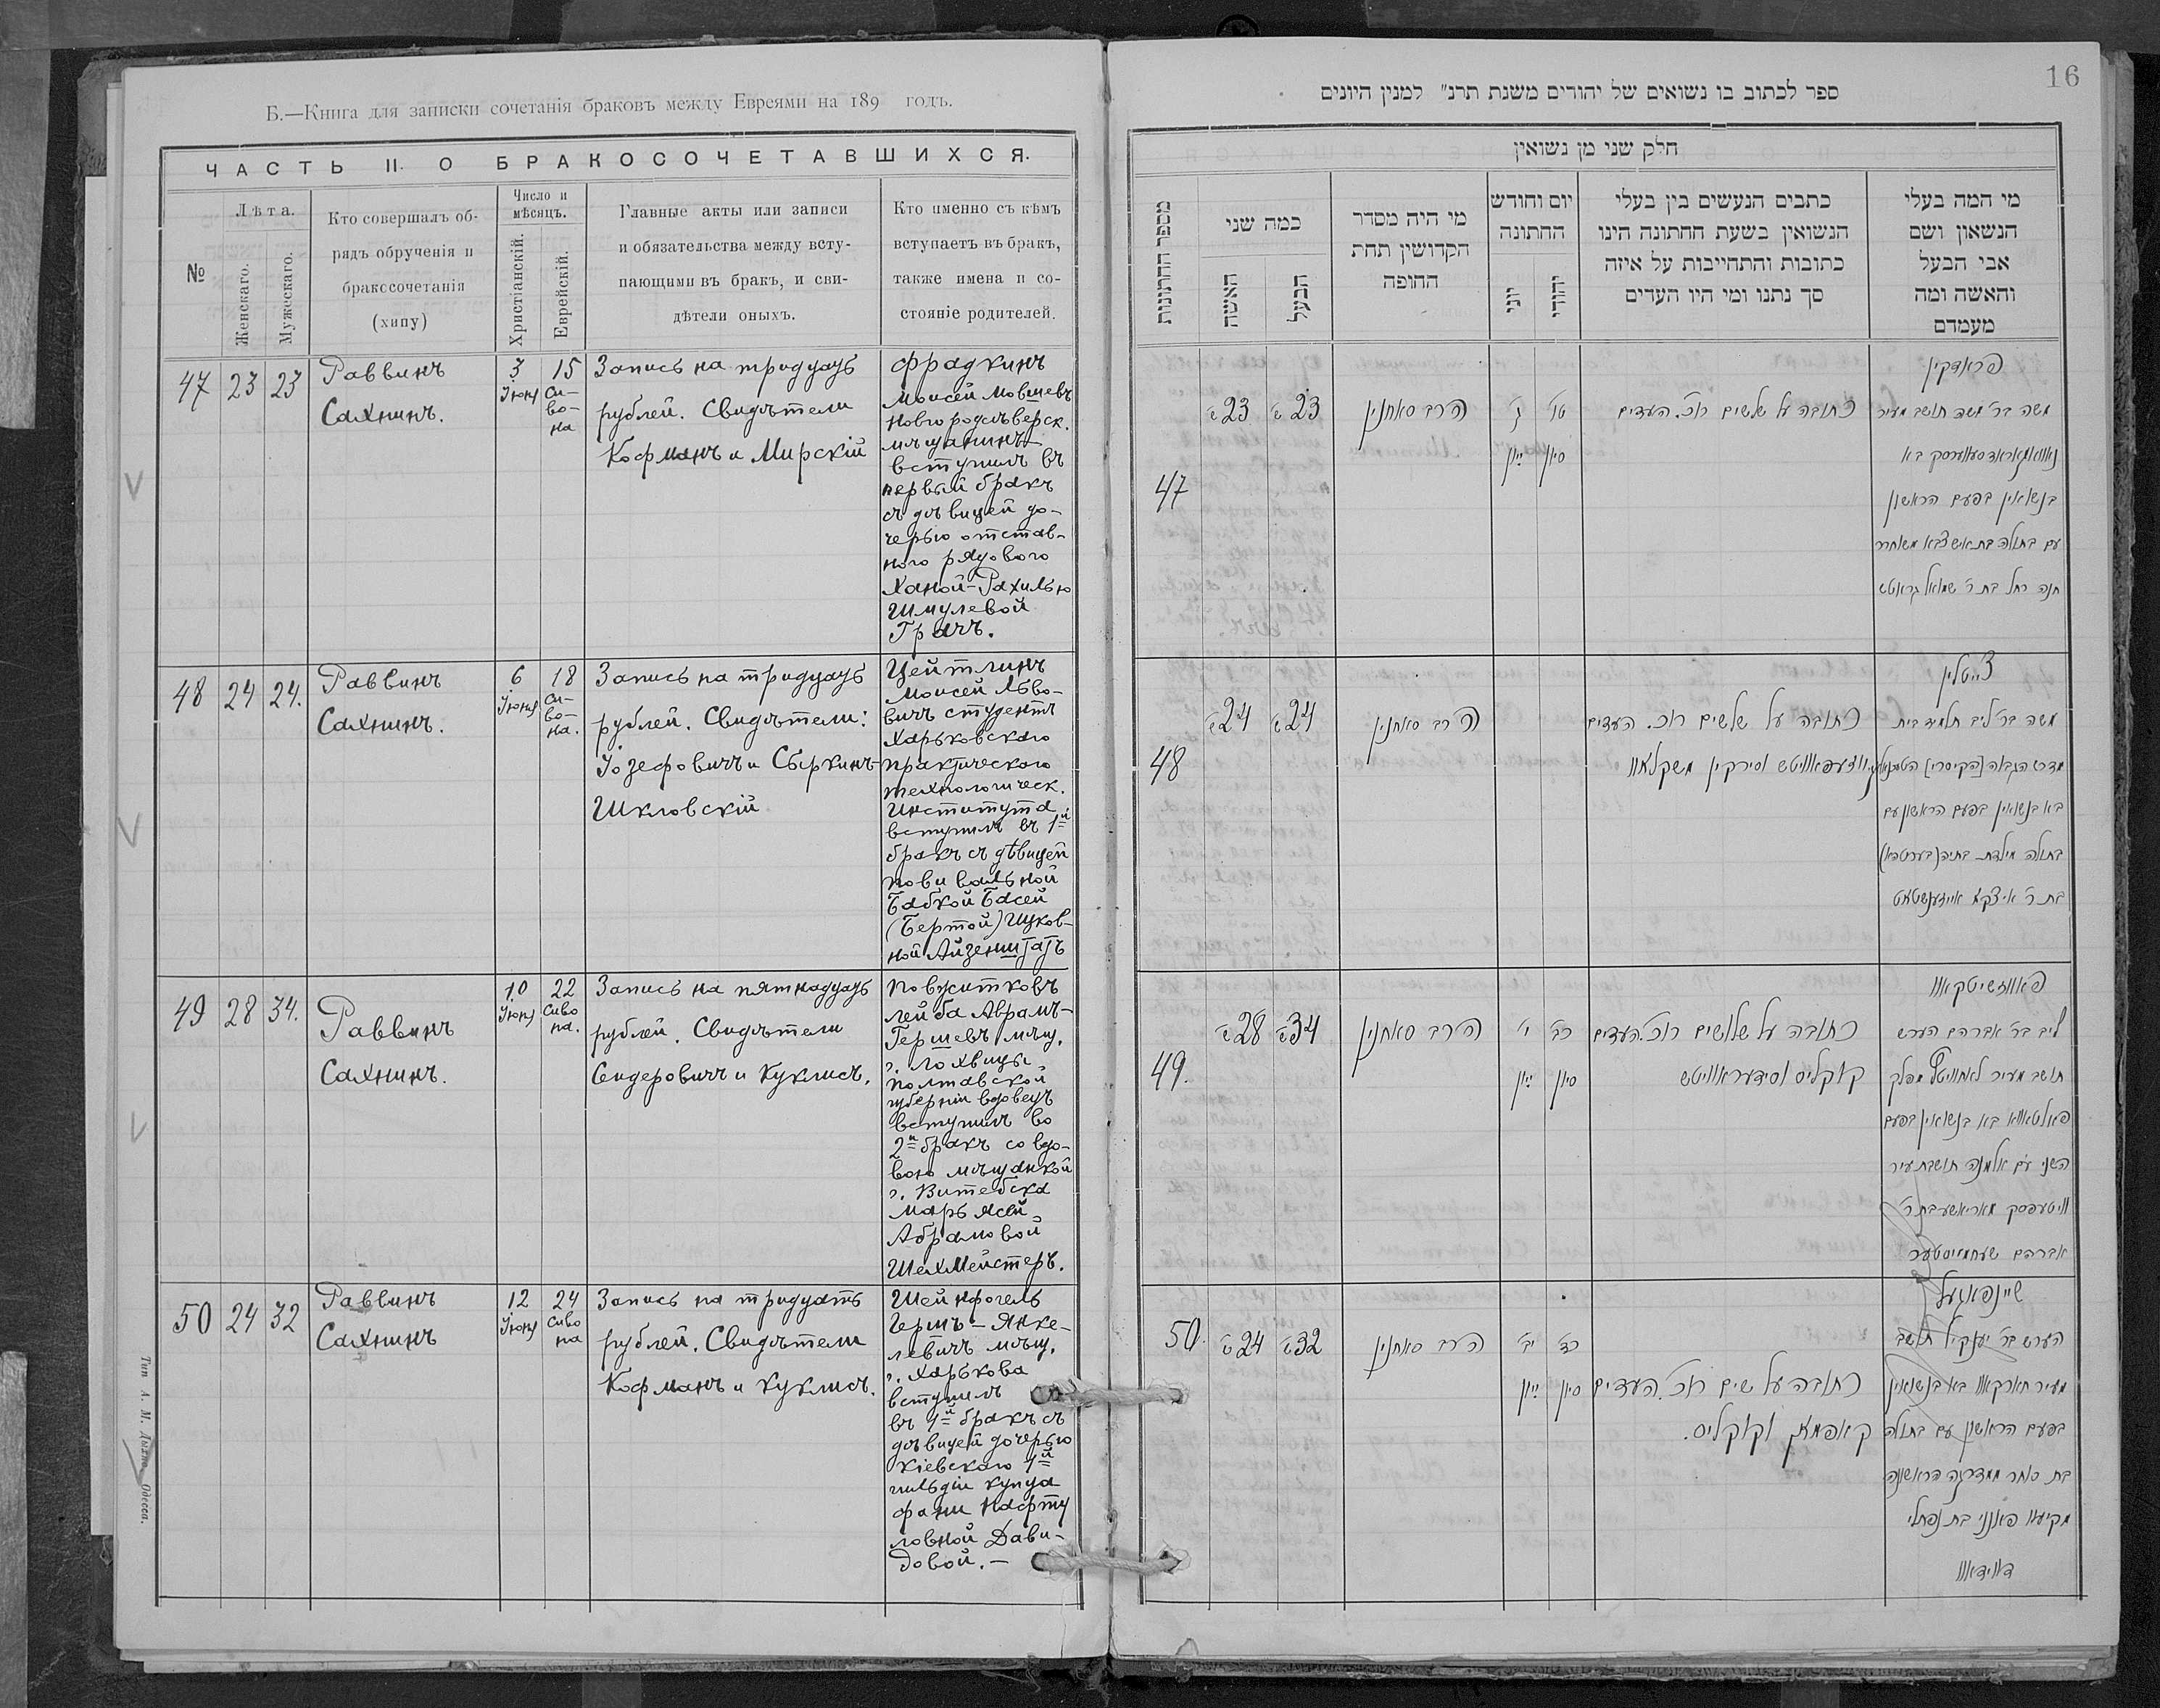 Б.—Книга для записки сочетанія браковъ между Евреями на 189 годъ.
ЧАСТЬ II. О БРАКОСОЧЕТАВШИХСЯ.
№
Лѣта.
Женскаго.
Мужескаго.
Кто совершалъ об-
рядъ обрученія и
бракссочетанія
(хипу)
Число и
мѣсяцъ.
Христіанскій.
Еврейскій.
Главные акты или записи
и обязательства между всту-
пающими въ бракъ, и сви-
дѣтели оныхъ.
Кто именно съ кѣмъ
вступаетъ въ бракъ,
также имена и со-
стояніе родителей.
47 23 23
Раввинъ
Сахнинъ.
3
Іюня
15
Си-
во-
на
Запись на тридцать
рублей. Свидѣтели
Кофманъ и Мирскій
Фрадкинъ
Моисей Мовшевъ
Новгородсѣверск.
мѣщанинъ
вступилъ въ
первый бракъ
съ дѣвицей до-
черью отстав-
ного рядового
Ханой-Рахилью
Шмулевой
Грачъ.
48 24 24.
Раввинъ
Сахнинъ.
6
Іюня
18
Си-
во-
на.
Запись на тридцать
рублей. Свидѣтели:
Іозефовичъ и Сыркинъ-
Шкловскій
Цейтлинъ
Моисей Льво-
вичъ студентъ
Харьковскаго
практическаго
технологическ.
Института
вступилъ въ 1й
бракъ съ дѣвицей
повивальной
бабкой Басей
(Бертой) Ицков-
ной Айзенштатъ
49 28 34.
Раввинъ
Сахнинъ.
10
Іюня
22
Сиво
на.
Запись на пятнадцать
рублей. Свидѣтели
Сидеровичъ и Куклисъ.
Повжитковъ
Лейба Аврамъ-
Гершевъ мѣщ.
г. Лохвицы
Полтавской
губерніи вдовецъ
вступилъ во
2й бракъ со вдо-
вою мѣщанкой
г. Витебска
Марьясей
Абрамовой
Шехмейстеръ.
50 24 32
Раввинъ
Сахнинъ
12
Іюня
24
Сиво
на
Запись на тридцать
рублей. Свидѣтели
Кофманъ и Куклисъ.
Шейнфогель
Гершъ-Янке-
левичъ мѣщ.
г. Харькова
вступилъ
въ 1й бракъ съ
дѣвицей дочерью
Кіевскаго 1й
гильдіи купца
Фани Нафту
ловной Дави-
довой.—
Тип. А. М. Дыхно, Одесса.
16
ספר לכתוב בו נשואים של יהודים משנת תרנ״ למנין היונים
חלק שני מן נשואין
מספר החתונות
כמה שני
האשה
הבעל
מי היה מסדר
הקדושין תחת
החופה
יום וחודש
החתונה
יוני
יהודי
כתבים הנעשים בין בעלי
הנשואין בשעת החתונה הינו
כתובות והתחייבות על איזה
סך נתנו ומי היו העדים
מי המה בעלי
הנשואן ושם
אבי הבעל
והאשה ומה
מעמדם
47
23 23
הרב סאחנין
ג׳
יון
טו׳
סיון
כתובה על שלשים רוכ. העדים
פראדקין
משה בר׳ משה תושב מעיר
בא
בנשואין בפעם הראשון
עם בתולה
חנה רחל בת ר׳ שמואל גראטש
48
24 24
הרב סאחנין
כתובה על שלשים רוכ. העדים
יוזעפאוויטש וסירקין משקלאוו
צייטלין
משה בר׳ ליב תלמיד בית
בא בנשואין בפעם הראשון עם
בתולה מילדת בתיה (בערטא)
בת ר׳ איצקא אייזענשטט
49.
28 34
הרב סאחנין
י׳
יון
כב׳
סיון
כתובה על שלושים רוכ. העדים
קוקליס וסידעראוויטש
פאווזשיטקאוו
ליב בר׳ אברהם הערש
תושב מעיר לאחוויצא מפלך
פאלטאווא בא בנשואין בפעם
השני עם אלמנה תושבת עיר
וויטעפסק מאריאשע בת ר׳
אברהם שעחמייסטער
50.
24 32
הרב סאחנין
יב׳
יון
כד׳
סיון
כתובה על שים רוכ. העדים
קאפמאן וקוקליס.
שיינפאגעל
הערש בר׳ יענקיל תושב
מעיר חארקאוו בא בנשואין
בפעם הראשון עם בתולה
בת סוחר ממדרגה הראשונה
מקיעוו פאנני בת נפתלי
דאווידאוו